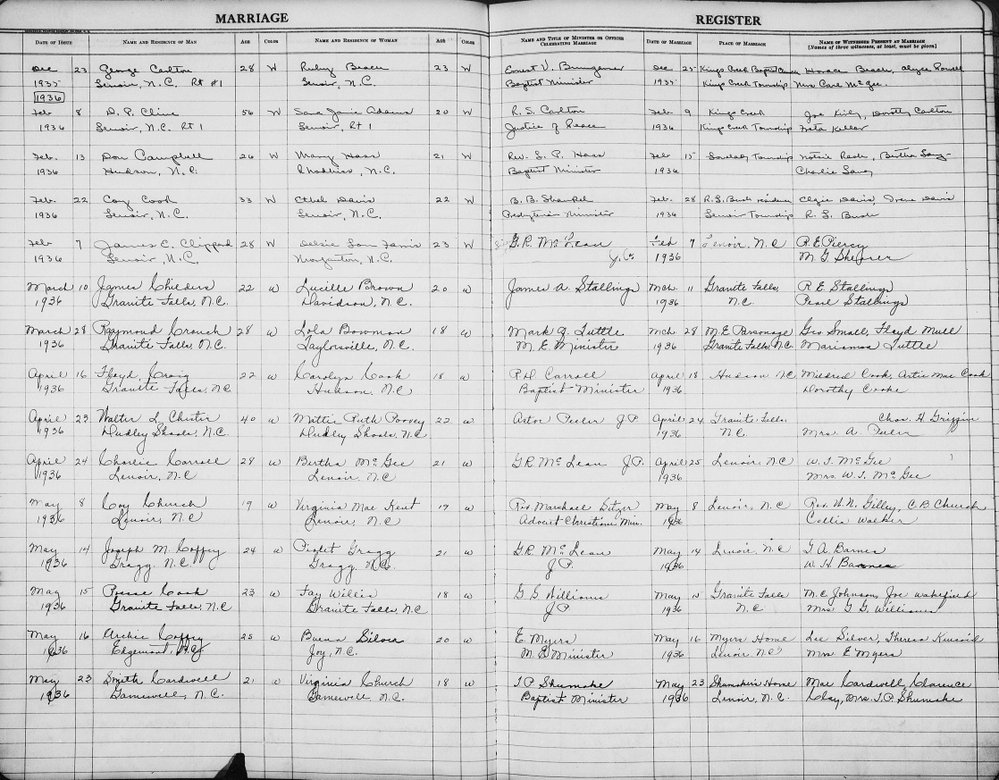 MARRIAGE
REGISTER
DATE OF ISSUE NAME AND RESIDENCE OF MAN AGE COLOR NAME AND RESIDENCE OF WOMAN AGE COLOR NAME AND TITLE OF MINISTER OR OFFICER CELEBRATING MARRIAGE DATE OF MARRIAGE PLACE OF MARRIAGE NAMES OF WITNESSES PRESENT AT MARRIAGE
[Names of three witnesses, at least, must be given]
Dec 23 George Carlton 28 W Ruby Beach 23 W Ernest V. Bumgarner Dec 25 Kings Creek Baptist Church Horace Beach,
1935 Lenoir, N.C. Rt #1 Lenoir, N.C. Baptist Minister 1935 Kings Creek Township Mrs Carl McGee
1936
Feb 8 D. P. Cline 56 W Sara Janie Adams 20 W R. S. Carlton Feb 9 Kings Creek Joe Kirby, Dorothy Carlton
1936 Lenoir, N.C. Rt 1 Lenoir, Rt 1 Justice of Peace 1936 Kings Creek Township Keller
Feb. 13 Don Campbell 26 W Mary Hass 21 W Rev. S. P. Hass Feb 15 Township
1936 Hudson, N.C. Rhodhiss, N.C. Baptist Minister 1936 Charlie
Feb. 22 Coy Cook 33 W Ethel Davis 22 W B. B. Feb. 28 R. S. Bush residence Clyde Davis, Irene Davis
1936 Lenoir, N.C. Lenoir, N.C. Minister 1936 Lenoir Township R. S. Bush
Feb 7 James C. Clippard 28 W 23 W G.R. McLean Feb 7 Lenoir, N.C R E Piercy
1936 Lenoir, N.C. Morganton, N.C. J.P. 1936 M G
March 10 James Childers 22 W Lucille Brown 20 W James A. Stallings Mch. 11 Granite Falls, R E Stallings
1936 Granite Falls, N.C. Davidson, N.C. 1936 N.C Pearl Stallings
March 28 Raymond Crouch 28 W Lola Bowman 18 W Mark Q. Tuttle Mch 28 M.E. Parsonage Geo Small, Floyd Mull
1936 Granite Falls, N.C. Taylorsville, N.C. M. E. Minister 1936 Granite Falls, N.C. Tuttle
April 16 Floyd Craig 22 W Carolyn Cook 18 W P.D Carroll April 18 Hudson N.C Mildred Cook, Artie Mae Cook
1936 Granite Falls, N.C Hudson, N.C Baptist Minister 1936 Dorothy Cooke
April 23 Walter L. Chester 40 W Mittie Ruth Poovey 22 W Astor Peeler J.P April 24 Granite Falls, Chas. H Griffin
1936 Dudley Shoals, N.C. Dudley Shoals, N.C 1936 N.C. Mrs. A. Peeler
April 24 Charlie Carroll 28 W Bertha McGee 21 W G.R. McLean J.P. April 25 Lenoir, N.C W. T. McGee
1936 Lenoir, N.C Lenoir, N.C 1936 Mrs. W. T. McGee
May 8 Coy Church 19 W Virginia Mae Kent 17 W Rev Marshall Setzer May 8 Lenoir, N.C Rev. W.N. Gilley, C.B Church
1936 Lenoir, N.C Lenoir, N.C Advent Christian Min. 1936 Collie Walker
May 14 Joseph M. Coffey 24 W Violet Gragg 21 W G.R. McLean May 14 Lenoir, N.C G A Barnes
1936 Gragg, N.C Gragg, N.C. J.P. 1936 W H Barnes
May 15 Cook 23 W Fay Willis 18 W G G Williams May 15 Granite Falls M.C Johnson, Joe Wakefield
1936 Granite Falls, N.C Granite Falls, N.C J.P 1936 N.C Mrs. G. G. Williams
May 16 Archie Coffey 25 W Buena Silver 20 W E. Myers May 16 Myers Home Lee Silver, Theresa Kincaid
1936 Edgemont, N.C Joy, N.C. M. E Minister 1936 Lenoir N.C Mrs. E Myers
May 23 Smith Cardwell 21 W Virginia Church 18 W T.P. Shumake May 23 Shumake's Home Mae Cardwell, Clarence
1936 Gamewell, N.C. Gamewell N.C. Baptist Minister 1936 Lenoir, N.C. Clay, Mrs. T.P. Shumake